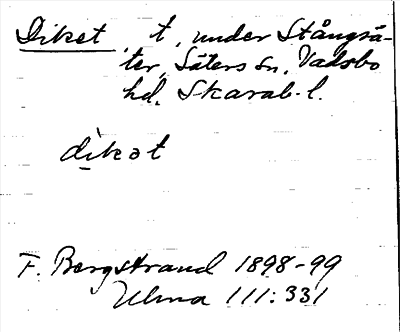 Diket, t, under Stångsä-
ter, Säters sn, Vadsbo
hd. Skarab. l.
dikət
F. Bergstrand 1898-99
Ulma 111:331